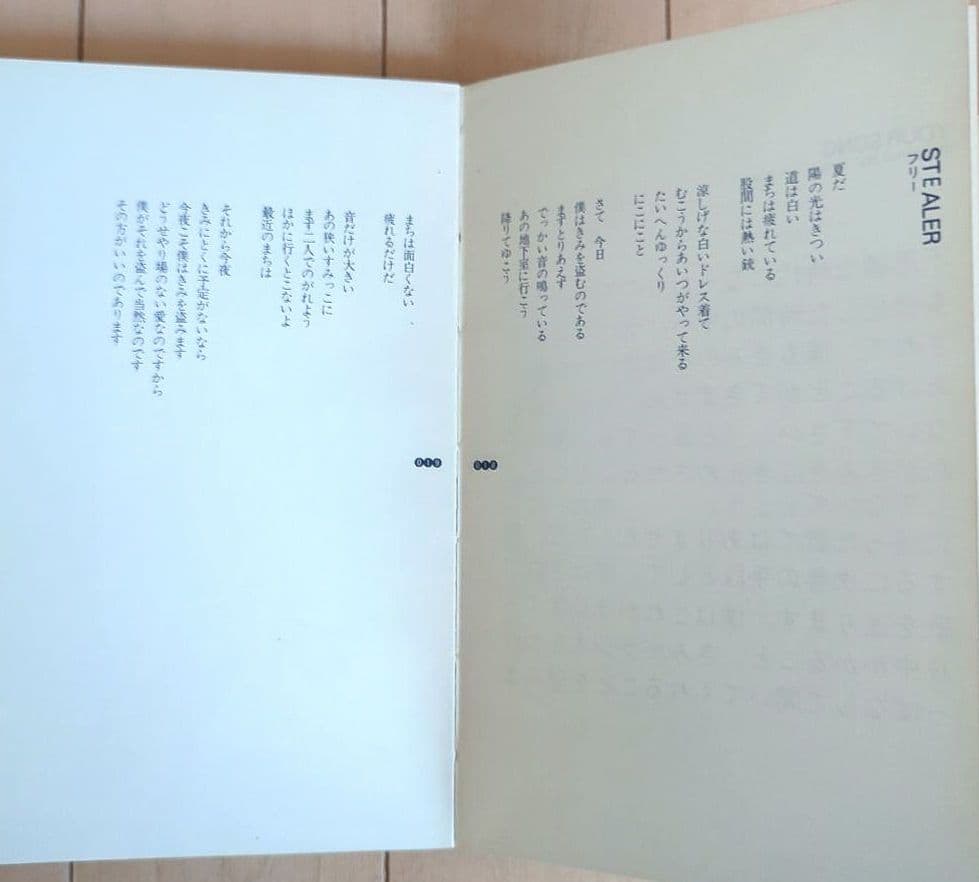 STEALER
フリー
夏だ
陽の光はきつい
道は白い
まちは疲れている
股間には熱い銃
涼しげな白いドレス着て
むこうからあいつがやって来る
たいへんゆっくり
にこにこと
さて 今日
僕はきみを盗むのである
まずとりあえず
でっかい音の鳴っている
あの地下室に行こう
降りてゆこう
018
まちは面白くない
疲れるだけだ
音だけが大きい
あの狭いすみっこに
まず二人でのがれよう
ほかに行くとこないよ
最近のまちは
それから今夜
きみにとくに予定がないなら
今夜こそ僕はきみを盗みます
どっせやり場のない愛なのですから
僕がそれを盗んで当然なのです
その方がいいのであります
019